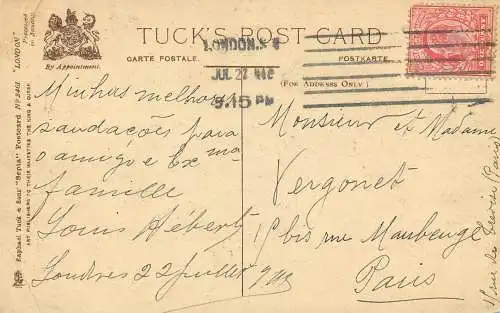 TUCK'S POST CARD
CARTE POSTALE.
POSTKARTE.
(FOR ADDRESS ONLY)
By Appointment.
"LONDON"
Processed in Saxony.
Raphael Tuck & Sons' "Sepia" Postcard Nº
ART PUBLISHERS TO THEIR MAJESTIES THE KING & QUEEN.
LONDON.
JUL 22
9.15 PM
Minhas melhores
saudações para
o amigo e Exma
famille
Louis Hébert
Londres 22 juillet
Monsieur et Madame
Vergonet
1 bis rue Maubeuge
Paris
rue de
(Paris)